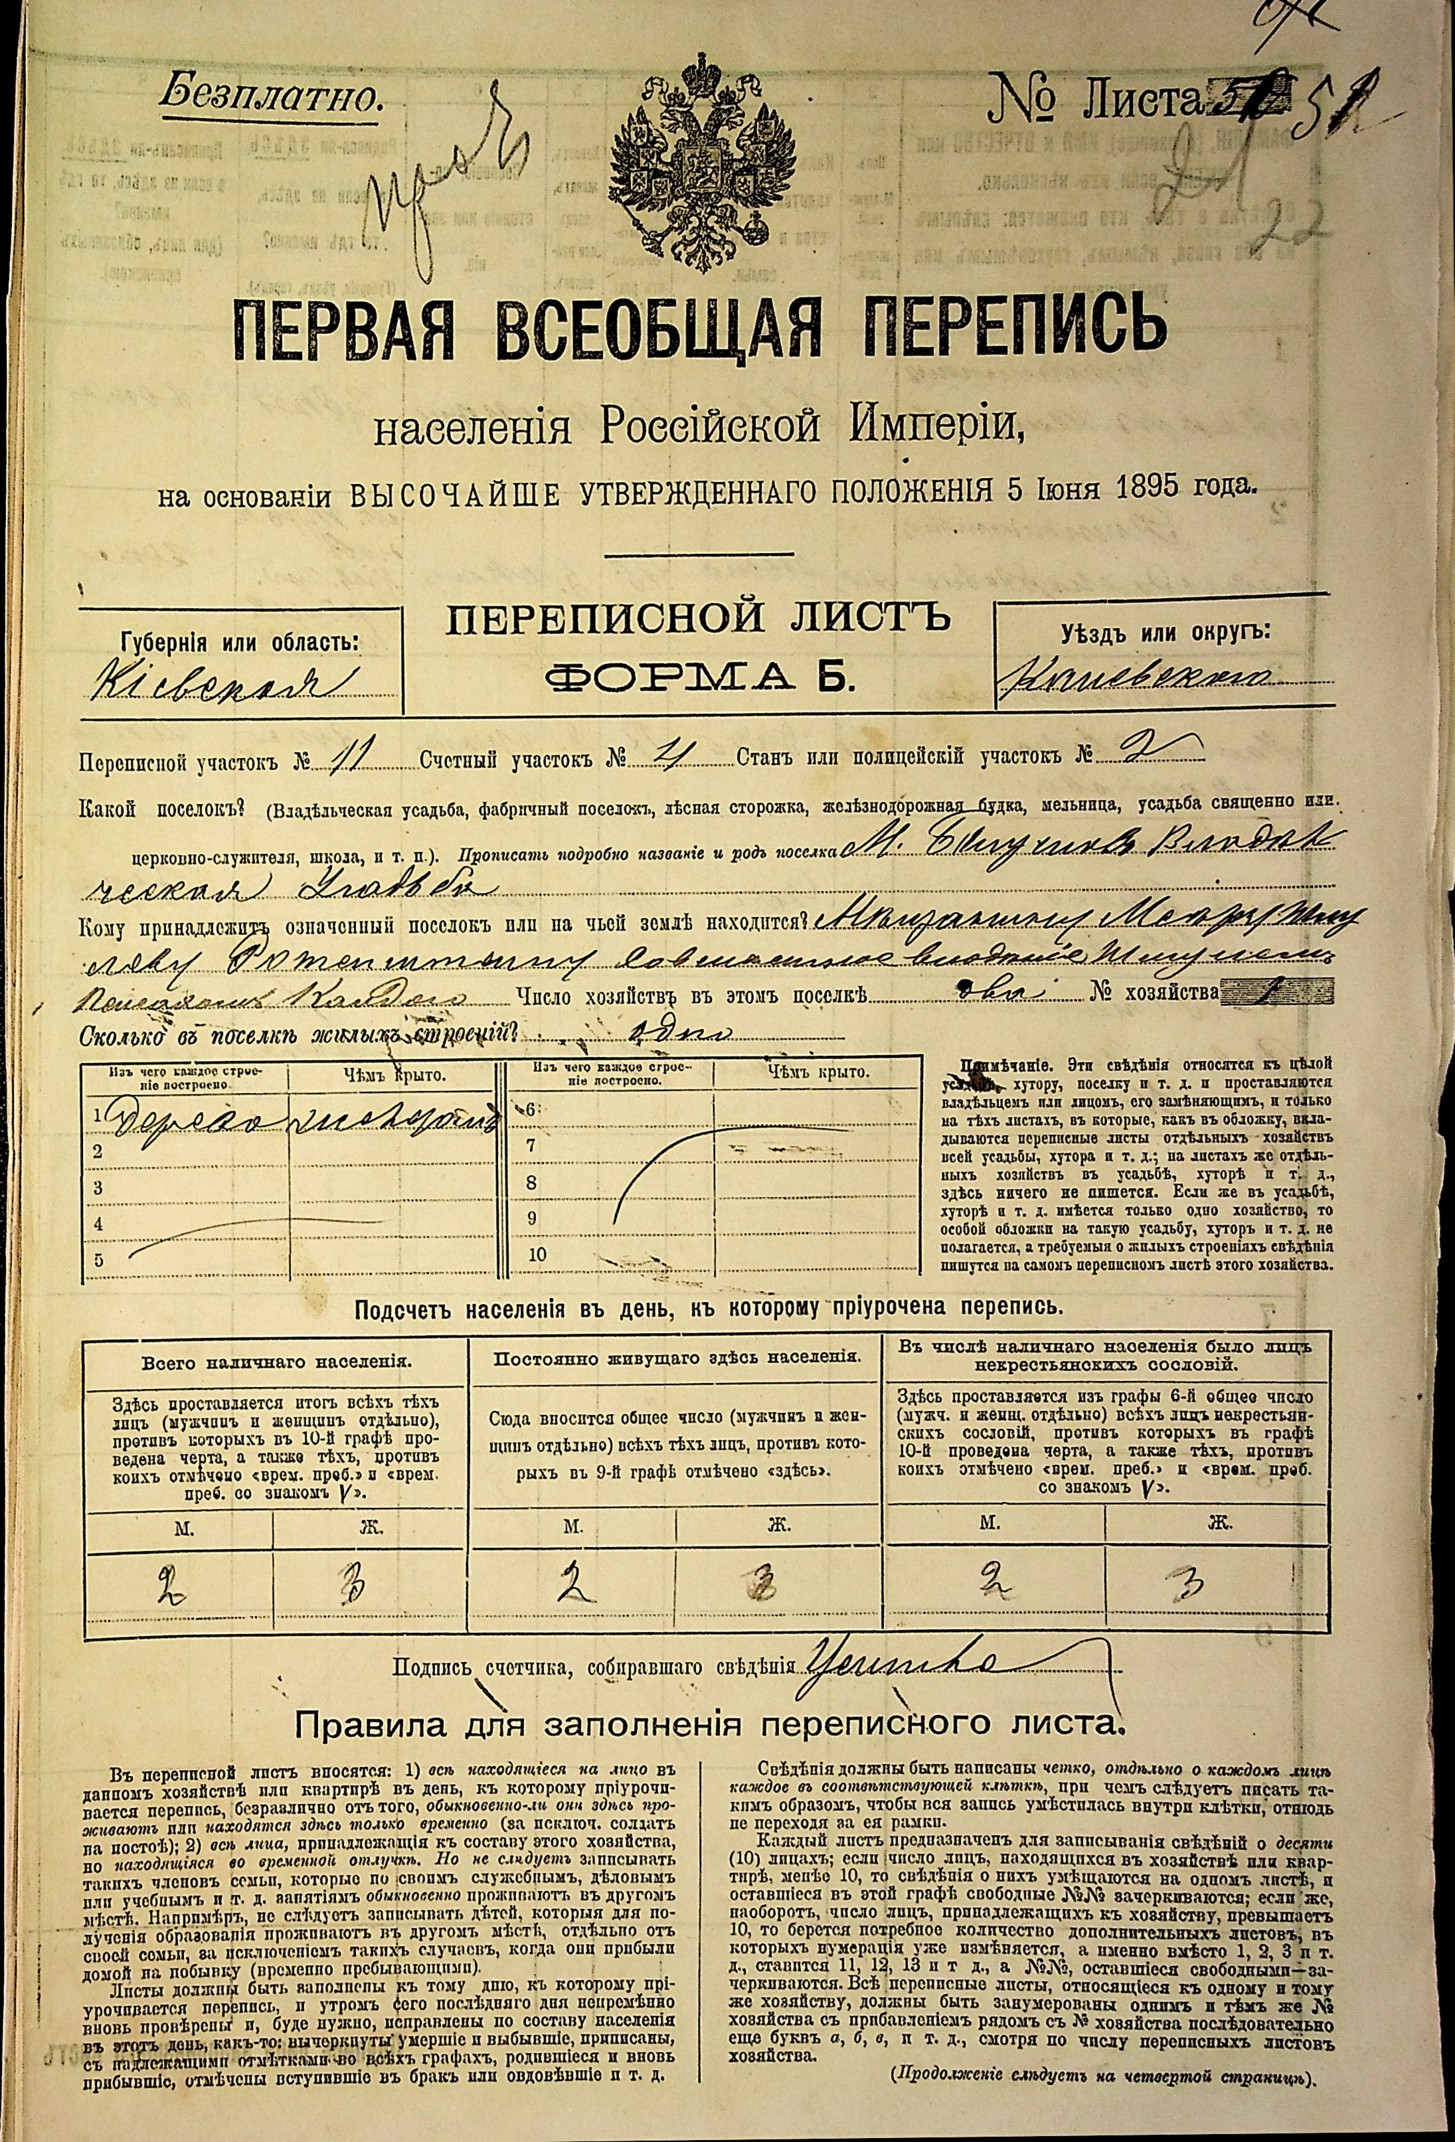 Безплатно.
№ Листа 51
22
ПЕРВАЯ ВСЕОБЩАЯ ПЕРЕПИСЬ
населенія Россійской Имперіи,
на основаніи ВЫСОЧАЙШЕ УТВЕРЖДЕННАГО ПОЛОЖЕНІЯ 5 Іюня 1895 года.
ПЕРЕПИСНОЙ ЛИСТЪ
ФОРМА Б.
Губернія или область:
Кіевская
Уѣздъ или округъ:
Каневскаго
Переписной участокъ № 11 Счетный участокъ № 4 Станъ или полицейскій участокъ № 2
Какой поселокъ? (Владѣльческая усадьба, фабричный поселокъ, лѣсная сторожка, желѣзнодорожная будка, мельница, усадьба священно или
церковно-служителя, школа, и т. п.). Прописать подробно названіе и родъ поселка М. Владѣль
ческая Усадьба
Кому принадлежитъ означенный поселокъ или на чьей землѣ находится?
владѣніе
Число хозяйствъ въ этомъ поселкѣ два № хозяйства 1
Сколько въ поселкѣ жилыхъ строеній? одно
Изъ чего каждое строеніе построено. Чѣмъ крыто. Изъ чего каждое строеніе построено. Чѣмъ крыто.
1 Дерево 6
2 7
3 8
4 9
5 10
Примѣчаніе. Эти свѣдѣнія относятся къ цѣлой
усадьбѣ, хутору, поселку и т. д. и проставляются
владѣльцемъ или лицомъ, его замѣняющимъ, и только
на тѣхъ листахъ, въ которые, какъ въ обложку, вкла-
дываются переписные листы отдѣльныхъ хозяйствъ
всей усадьбы, хутора и т. д.; на листахъ же отдѣль-
ныхъ хозяйствъ въ усадьбѣ, хуторѣ и т. д.,
здѣсь ничего не пишется. Если же въ усадьбѣ,
хуторѣ и т. д. имѣется только одно хозяйство, то
особой обложки на такую усадьбу, хуторъ и т. д. не
полагается, а требуемыя о жилыхъ строеніяхъ свѣдѣнія
пишутся на самомъ переписномъ листѣ этого хозяйства.
Подсчетъ населенія въ день, къ которому пріурочена перепись.
Всего наличнаго населенія.
Здѣсь проставляется итогъ всѣхъ тѣхъ
лицъ (мужчинъ и женщинъ отдѣльно),
противъ которыхъ въ 10-й графѣ про-
ведена черта, а также тѣхъ, противъ
коихъ отмѣчено «врем. преб.» и «врем.
преб. со знакомъ V».
М. Ж.
2 3
Постоянно живущаго здѣсь населенія.
Сюда вносится общее число (мужчинъ и жен-
щинъ отдѣльно) всѣхъ тѣхъ лицъ, противъ кото-
рыхъ въ 9-й графѣ отмѣчено «здѣсь».
М. Ж.
2 3
Въ числѣ наличнаго населенія было лицъ
некрестьянскихъ сословій.
Здѣсь проставляется изъ графы 6-й общее число
(мужч. и женщ. отдѣльно) всѣхъ лицъ некрестьян-
скихъ сословій, противъ которыхъ въ графѣ
10-й проведена черта, а также тѣхъ, противъ
коихъ отмѣчено «врем. преб.» и «врем. преб.
со знакомъ V».
М. Ж.
2 3
Подпись счетчика, собиравшаго свѣдѣнія
Правила для заполненія переписного листа.
Въ переписной листъ вносятся: 1) всѣ находящіеся на лицо въ
данномъ хозяйствѣ или квартирѣ въ день, къ которому пріурочи-
вается перепись, безразлично отъ того, обыкновенно-ли они здѣсь про-
живаютъ или находятся здѣсь только временно (за исключ. солдатъ
на постоѣ); 2) всѣ лица, принадлежащія къ составу этого хозяйства,
но находящіяся во временной отлучкѣ. Но не слѣдуетъ записывать
такихъ членовъ семьи, которые по своимъ служебнымъ, дѣловымъ
или учебнымъ и т. д. занятіямъ обыкновенно проживаютъ въ другомъ
мѣстѣ. Напримѣръ, не слѣдуетъ записывать дѣтей, которыя для по-
лученія образованія проживаютъ въ другомъ мѣстѣ, отдѣльно отъ
своей семьи, за исключеніемъ такихъ случаевъ, когда они прибыли
домой на побывку (временно пребывающими).
Листы должны быть заполнены къ тому дню, къ которому прі-
урочивается перепись, и утромъ сего послѣдняго дня непремѣнно
вновь провѣрены и, буде нужно, исправлены по составу населенія
въ этотъ день, какъ-то: вычеркнуты умершіе и выбывшіе, приписаны,
съ надлежащими отмѣтками во всѣхъ графахъ, родившіеся и вновь
прибывшіе, отмѣчены вступившіе въ бракъ или овдовѣвшіе и т. д.
Свѣдѣнія должны быть написаны четко, отдѣльно о каждомъ лицѣ
каждое въ соотвѣтствующей клѣткѣ, при чемъ слѣдуетъ писать та-
кимъ образомъ, чтобы вся запись умѣстилась внутри клѣтки, отнюдь
не переходя за ея рамки.
Каждый листъ предназначенъ для записыванія свѣдѣній о десяти
(10) лицахъ; если число лицъ, находящихся въ хозяйствѣ или квар-
тирѣ, менѣе 10, то свѣдѣнія о нихъ умѣщаются на одномъ листѣ, и
оставшіеся въ этой графѣ свободные №№ зачеркиваются; если же,
наоборотъ, число лицъ, принадлежащихъ къ хозяйству, превышаетъ
10, то берется потребное количество дополнительныхъ листовъ, въ
которыхъ нумерація уже измѣняется, а именно вмѣсто 1, 2, 3 и т.
д., ставится 11, 12, 13 и т д., а №№, оставшіеся свободными—за-
черкиваются. Всѣ переписные листы, относящіеся къ одному и тому
же хозяйству, должны быть занумерованы однимъ и тѣмъ же №
хозяйства съ прибавленіемъ рядомъ съ № хозяйства послѣдовательно
еще буквъ а, б, в, и т. д., смотря по числу переписныхъ листовъ
хозяйства.
(Продолженіе слѣдуетъ на четвертой страницѣ).